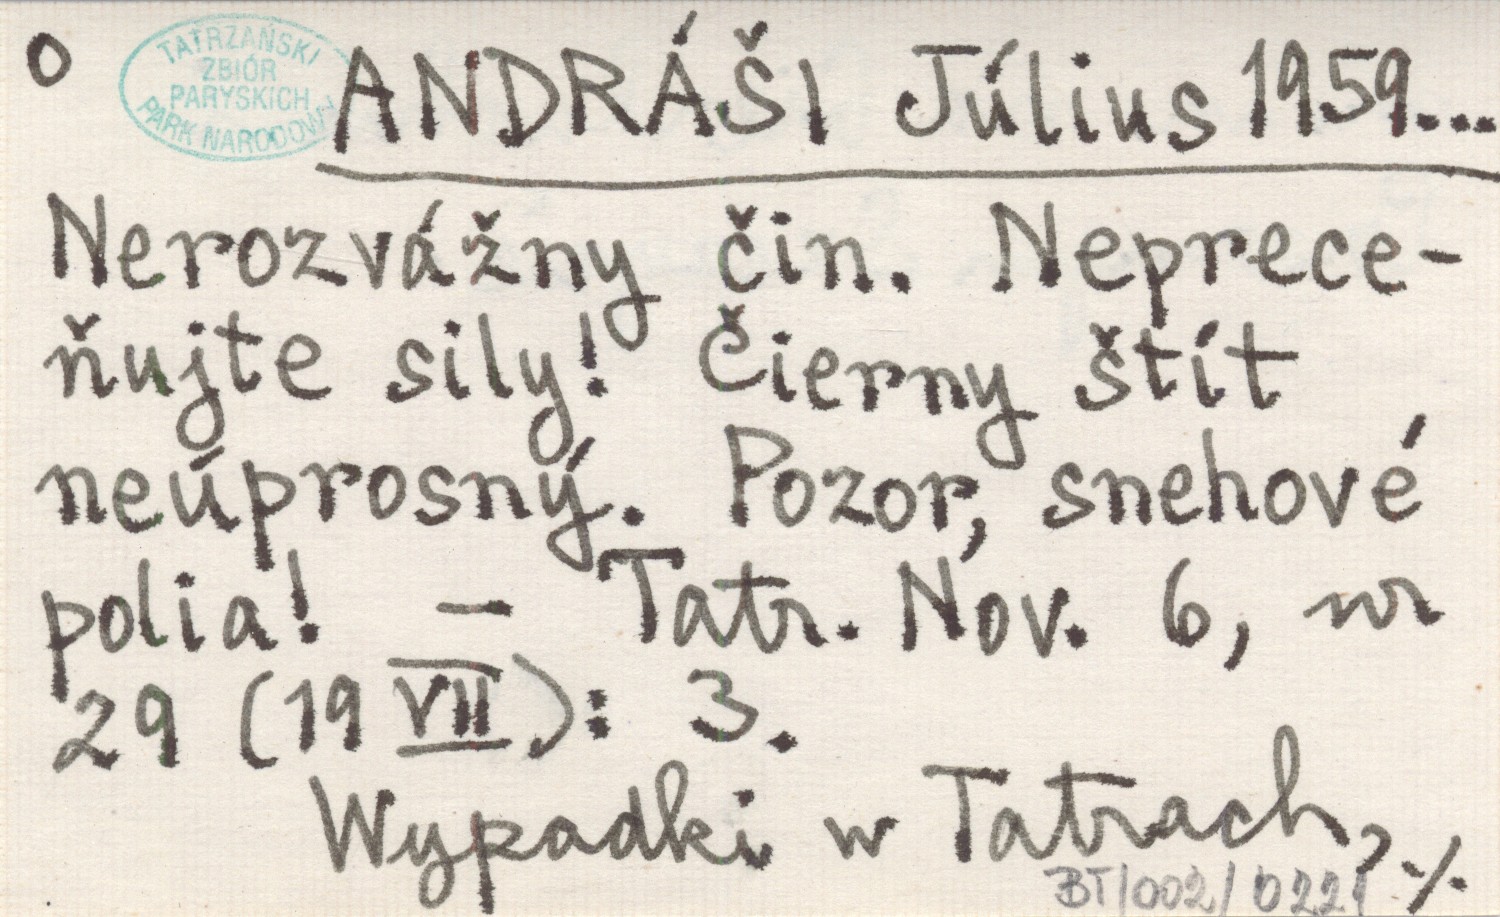 O
TATRZAŃSKI
ZBIÓR
PARYSKICH
PARK NARODOWY
ANDRÁŠI Július 1959...
Nerozvážny čin. Neprece-
ňujte sily! Čierny štít
neúprosný. Pozor, snehové
polia! – Tatr. Nov. 6, nr
29 (19 VII): 3.
Wypadki w Tatrach, ./.
BT/002/0221